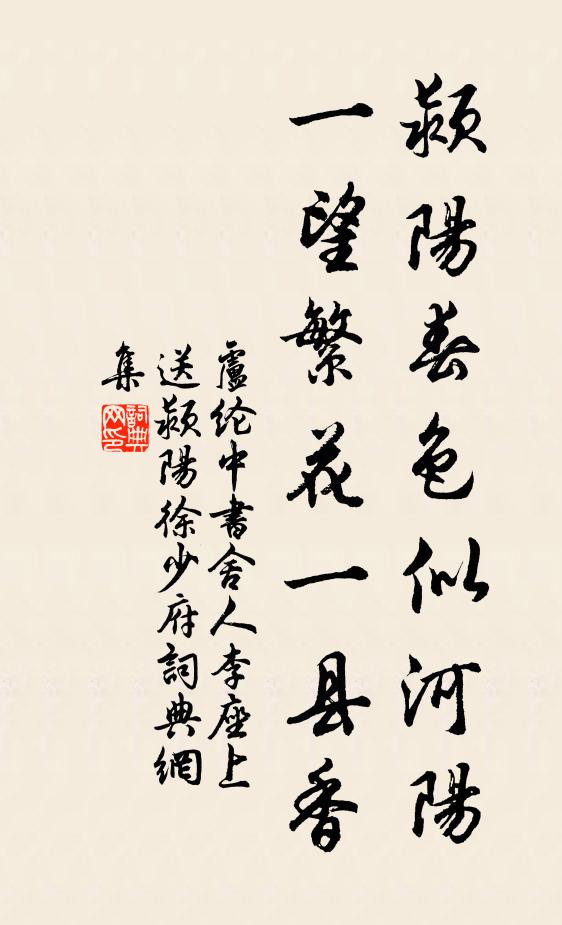 颍陽春色似河陽
一望繁花一县香
盧纶中書舍人李座上
送颍陽徐少府詞典網
集
詞典网印